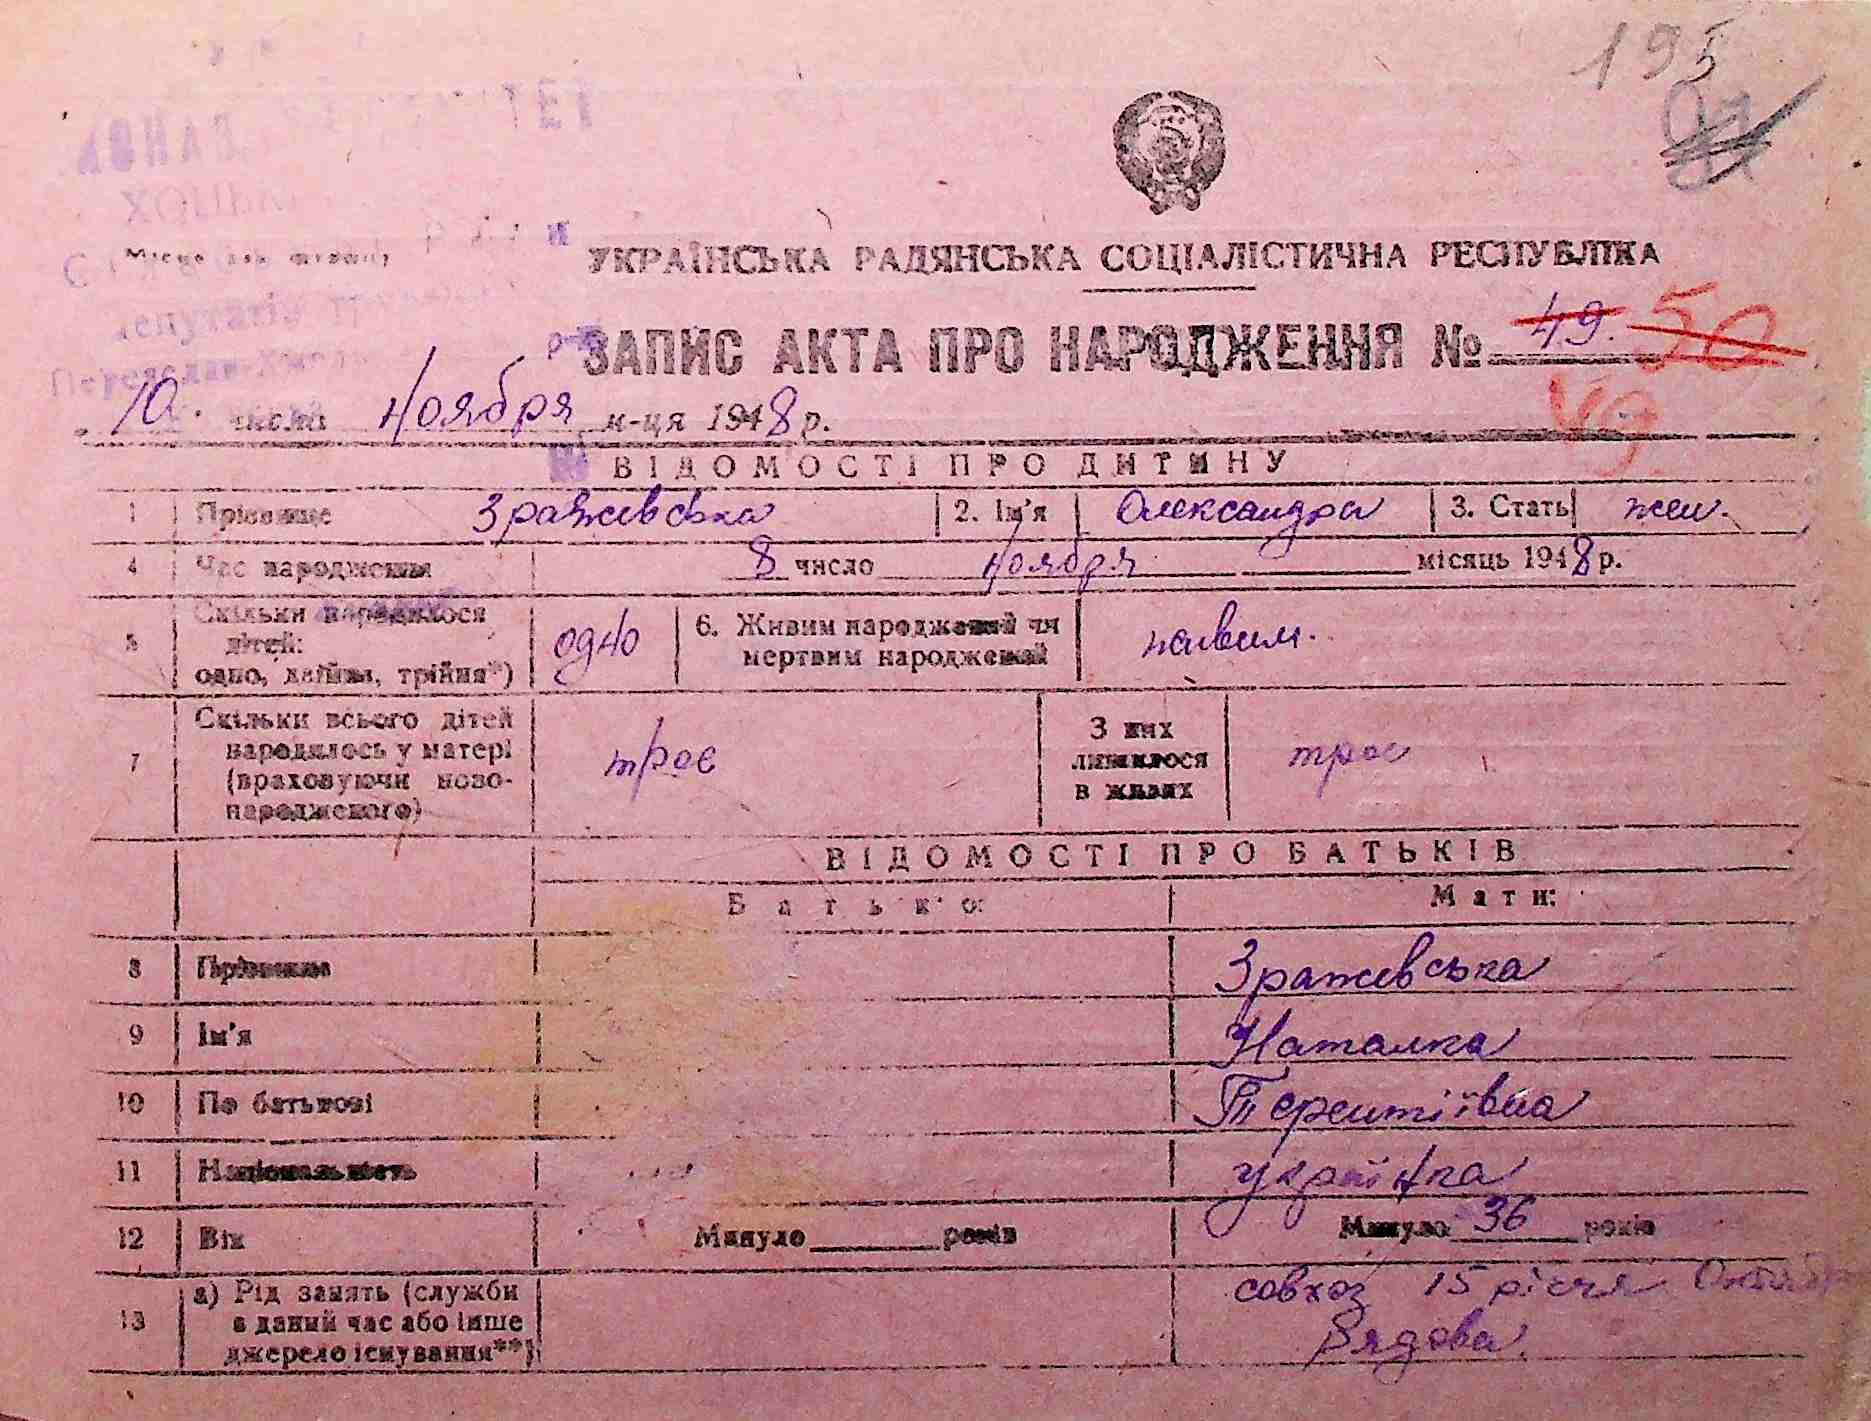 195
УКРАЇНСЬКА РАДЯНСЬКА СОЦІАЛІСТИЧНА РЕСПУБЛІКА
ЗАПИС АКТА ПРО НАРОДЖЕННЯ № 49. 50
49.
10. числа Ноября м-ця 1948 р.
ВІДОМОСТІ ПРО ДИТИНУ
1 Прізвище Зражевська 2. Ім'я Олександра 3. Стать жен.
4 Час народження 8 число Ноября місяць 1948 р.
5 Скільки народилося дітей: одно, двійня, трійня*) одно 6. Живим народжений чи мертвим народжений живим.
7 Скільки всього дітей народилось у матері (враховуючи новонародженого) троє З них лишилося в живих троє
ВІДОМОСТІ ПРО БАТЬКІВ
Батько: Мати:
8 Прізвище Зражевська
9 Ім'я Наталка
10 По батькові Терентіївна
11 Національність українка
12 Вік Минуло років Минуло 36 років
13 а) Рід занять (служби в даний час або інше джерело існування**) совхоз 15 річчя
Рядова.